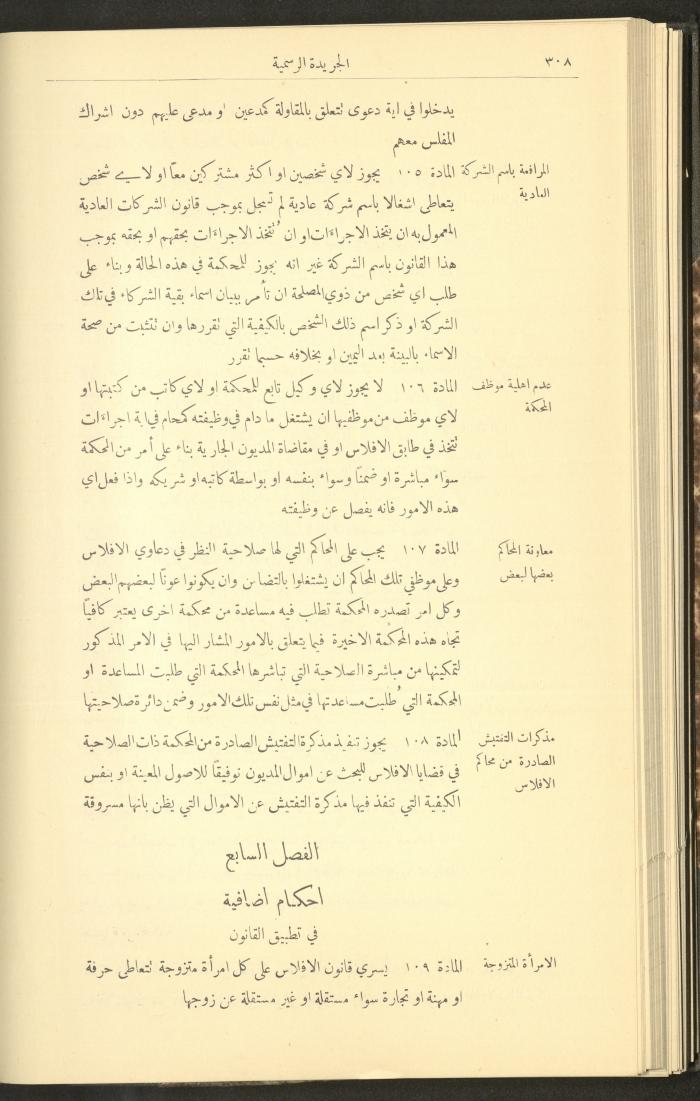 ٣٠٨
الجريدة الرسمية
يدخلوا في اية دعوى تتعلق بالمقاولة كمدعين او مدعى عليهم دون اشراك
المفلس معهم
المرافعة باسم الشركة
العادية
المادة ١٠٥ يجوز لاي شخصين او اكثر مشتركين معاً او لاي شخص
يتعاطى اشغالا باسم شركة عادية لم تسجل بموجب قانون الشركات العادية
المعمول به ان يتخذ الاجراءات او ان تُتخذ الاجراءات بحقهم او بحقه بموجب
هذا القانون باسم الشركة غير انه يجوز للمحكمة في هذه الحالة وبناء على
طلب اي شخص من ذوي المصلحة ان تأمر ببيان اسماء بقية الشركاء في تلك
الشركة او ذكر اسم ذلك الشخص بالكيفية التي تقررها وان تتثبت من صحة
الاسماء بالبينة بعد اليمين او بخلافه حسبما تقرر
عدم اهلية موظف
المحكمة
المادة ١٠٦ لا يجوز لاي وكيل تابع للمحكمة او لاي كاتب من كتبتها او
لاي موظف من موظفيها ان يشتغل ما دام في وظيفته كمحام في اية اجراءات
تتخذ في طابق الافلاس او في مقاضاة المديون الجارية بناء على أمر من المحكمة
سواء مباشرة او ضمناً وسواء بنفسه او بواسطة كاتبه او شريكه واذا فعل اي
هذه الامور فانه يفصل عن وظيفته
معاونة المحاكم
بعضها لبعض
المادة ١٠٧ يجب على المحاكم التي لها صلاحية النظر في دعاوي الافلاس
وعلى موظفي تلك المحاكم ان يشتغلوا بالتضامن وان يكونوا عوناً لبعضهم البعض
وكل امر تصدره المحكمة تطلب فيه مساعدة من محكمة اخرى يعتبر كافياً
تجاه هذه المحكمة الاخيرة فيما يتعلق بالامور المشار اليها في الامر المذكور
لتمكينها من مباشرة الصلاحية التي تباشرها المحكمة التي طلبت المساعدة او
المحكمة التي طُلبت مساعدتها في مثل نفس تلك الامور وضمن دائرة صلاحيتها
مذكرات التفتيش
الصادرة من محاكم
الافلاس
المادة ١٠٨ يجوز تنفيذ مذكرة التفتيش الصادرة من المحكمة ذات الصلاحية
في قضايا الافلاس للبحث عن اموال المديون توفيقاً للاصول المعينة او بنفس
الكيفية التي تنفذ فيها مذكرة التفتيش عن الاموال التي يظن بانها مسروقة
الفصل السابع
احكام اضافية
في تطبيق القانون
الامرأة المتزوجة
المادة ١٠٩ يسري قانون الافلاس على كل امرأة متزوجة تتعاطى حرفة
او مهنة او تجارة سواء مستقلة او غير مستقلة عن زوجها